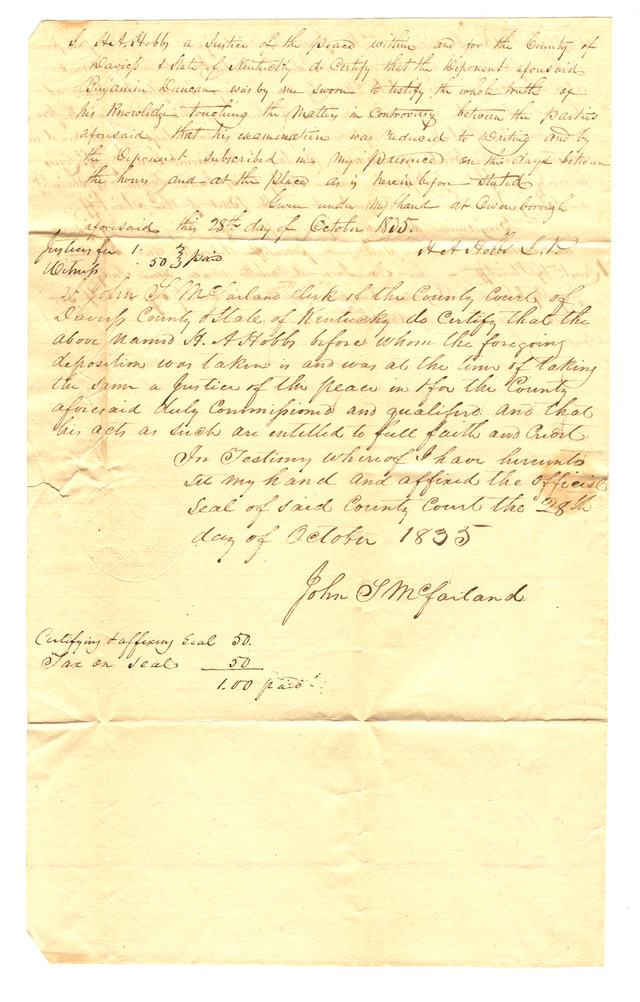 I H. A. Hobbs a Justice of the peace within and for the County of
Daviess & State of Kentucky do Certify that the Deponent aforesaid
Benjamin Duncan was by me sworn to testify the whole truth of
his Knowledge touching the Matters in Controversy between the parties
aforesaid that his examination was reduced to writing and by
the Deponent subscribed in my presence on the days between
the hours and at the place as is herein before stated
Given under my hand at Owensborough
aforesaid this 28th day of October 1835.
H A Hobbs J. P.
Justices fee 1.
Witness .50 paid
I John S. McFarland clerk of the County Court of
Daviess County & State of Kentucky do Certify that the
above named H. A Hobbs before whom the foregoing
deposition was taken is and was at the time of taking
the same a Justice of the peace in & for the County
aforesaid duly Commissioned and qualified and that
his acts as such are entitled to full faith and Credit
In Testimony whereof I have hereunto
set my hand and affixed the official
seal of said County Court the 28th
day of October 1835
John S McFarland
Certifying & affixing seal 50.
Tax on seal 50
1.00 paid